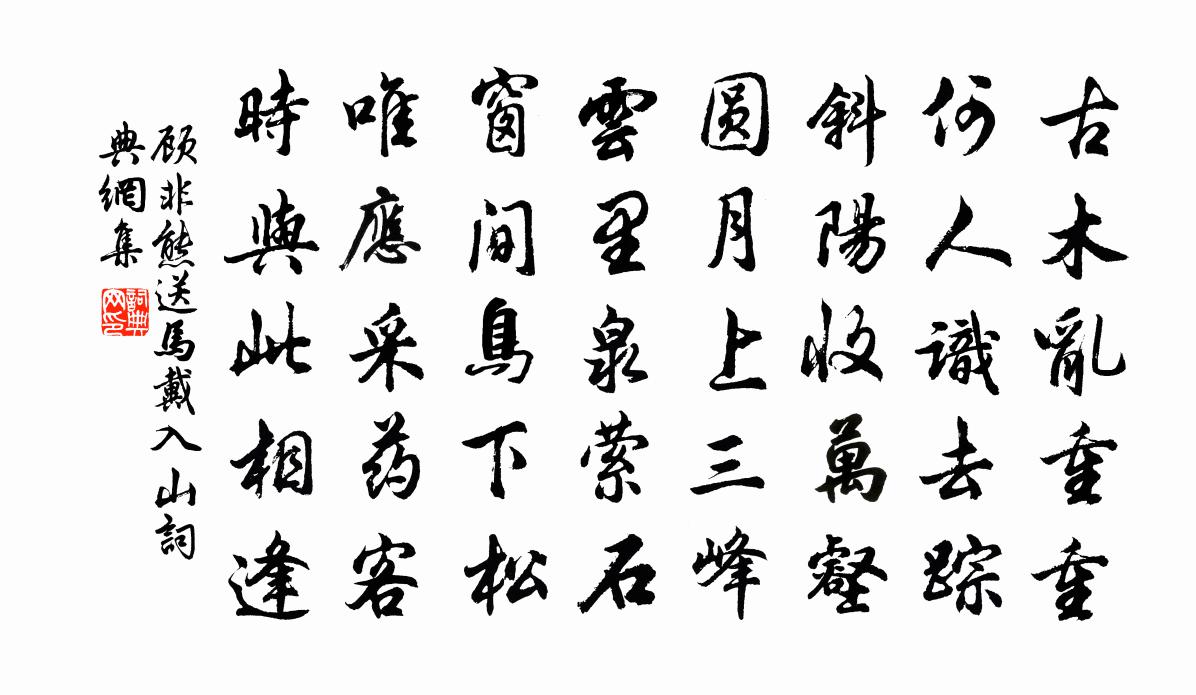 古木亂重重
何人識去踪
斜陽收萬壑
圆月上三峰
雲里泉萦石
窗间鳥下松
唯應采药客
時與此相逢
顾非熊送馬戴入山詞
典網集
詞典
网印